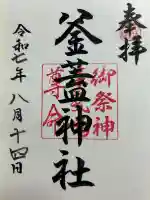 奉拝
御祭神
釜蓋神社
尊命
令和七年八月十四日